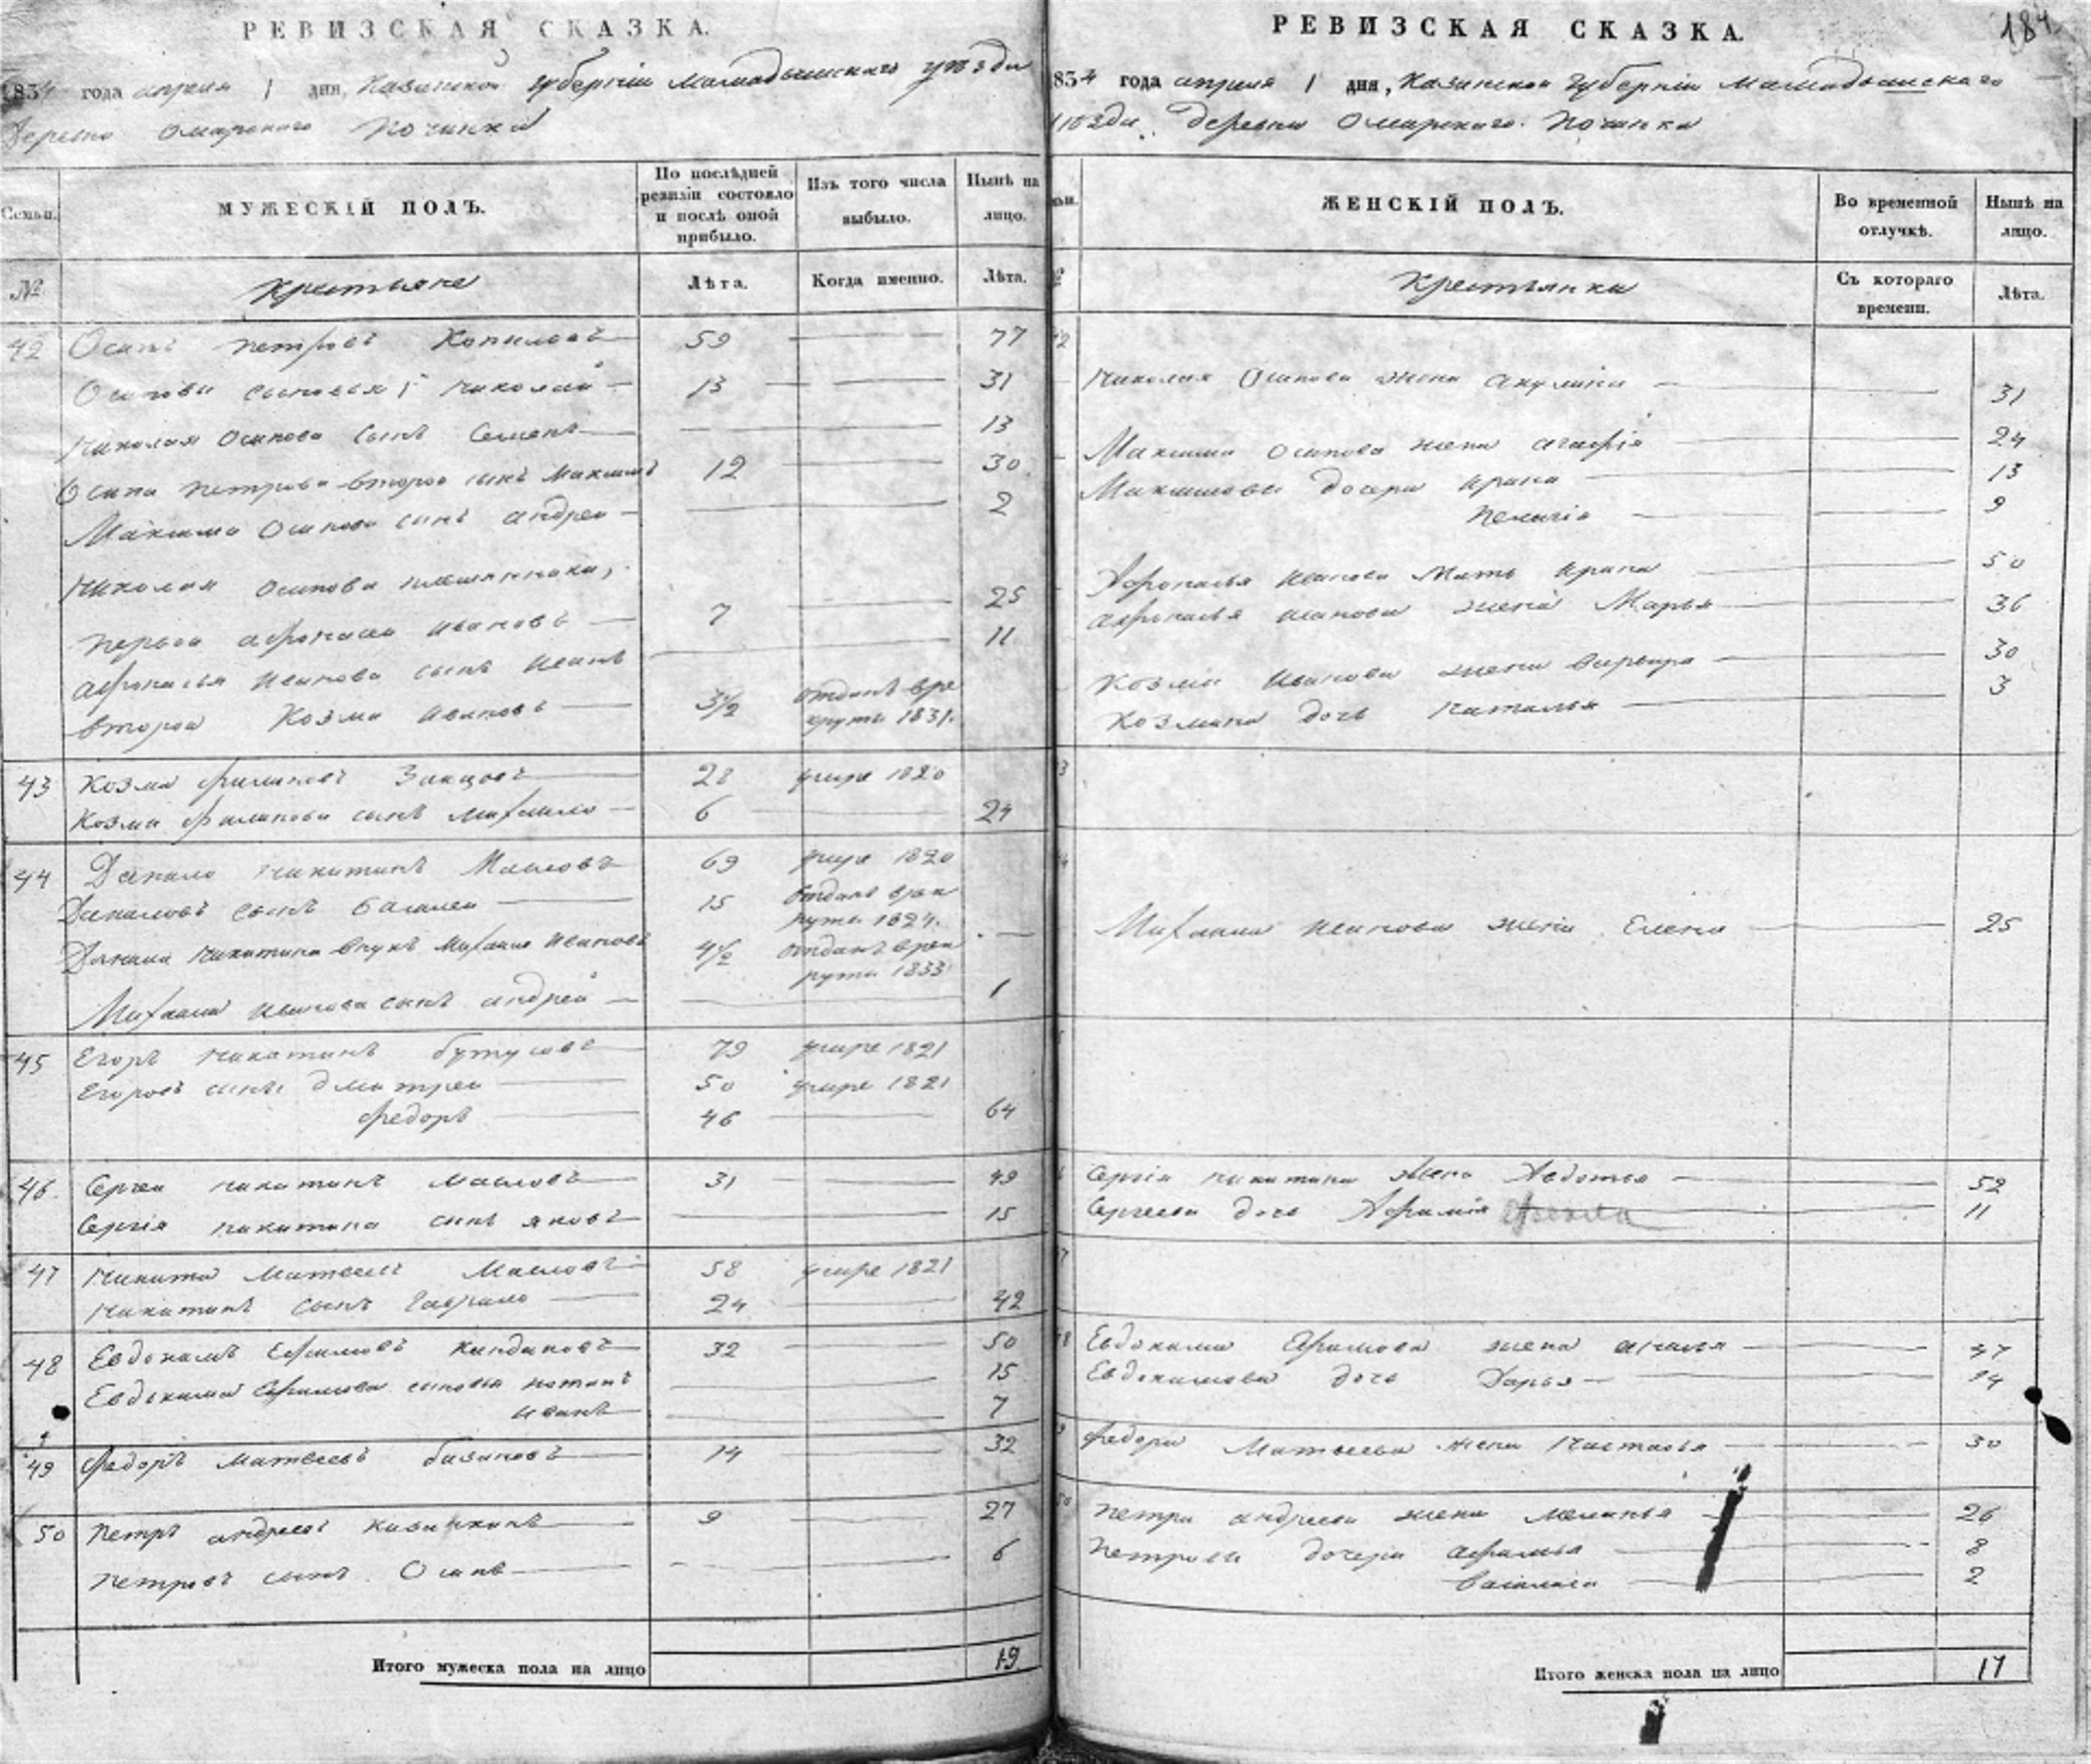 РЕВИЗСКАЯ СКАЗКА.
1834 года апреля 1 дня, Казанской Губернiи Мамадышскаго уѣзда
Деревни Омарскаго Починка
Семьи.
МУЖЕСКIЙ ПОЛЪ.
По послѣдней ревизiи состояло и послѣ оной прибыло.
Изъ того числа выбыло.
Нынѣ на лицо.
№
Крестьяне
Лѣта.
Когда именно.
Лѣта.
42 Осипъ Петровъ Копиловъ 59 77
Осиповы сыновья 1 Николай 13 31
Николая Осипова сынъ Семенъ 13
Осипа Петрова второй сынъ Максимъ 12 30
Максима Осипова сынъ Андреи 2
Николая Осипова племянники,
первои Афонасеи Ивановъ 7 25
Афонасья Иванова сынъ Иванъ 11
второй Козма Ивановъ 3½ отданъ вре
круты 1831.
43 Козма Филиповъ Заицовъ 28 умре 1820
Козмы Филипова сынъ Михаило 6 24
44 Данило Никитинъ Масловъ 69 умре 1820
Даниловъ сынъ Василеи 15 отданъ врек
руты 1824.
Данила Никитина внукъ Михаила Ивановъ 4½ отданъ врек
руты 1833
Михаила Иванова сынъ Андрей 1
45 Егоръ Никитинъ Бутусовъ 79 умре 1821
Егоровы сыны Дмитреи 50 умре 1821
Федоръ 46 64
46. Сергеи Никитинъ Масловъ 31 49
Сергiя Никитина сынъ Яковъ 15
47 Никита Матвеевъ Масловъ 58 умре 1821
Никитинъ сынъ Гаврило 24 42
48 Евдокимъ Ефимовъ 32 50
Евдокима Ефимова сыновья Потапъ 15
Иванъ 7
49 Федоръ Матвеевъ Базановъ 14 32
50 Петръ Андреевъ 9 27
Петровъ сынъ Осипъ 6
Итого мужеска пола на лицо 19
184
РЕВИЗСКАЯ СКАЗКА.
1834 года апреля 1 дня, Казанской Губернiи Мамадышскаго
уѣзда. Деревни Омарскаго Починка
ЖЕНСКIЙ ПОЛЪ.
Во временной отлучкѣ.
Нынѣ на лицо.
Крестьянки
Съ котораго времени.
Лѣта.
42
Николая Осипова жена Акулина 31
Максима Осипова жена Агафiя 24
Максимовы дочери Ирина 13
Пелагiя 9
Афонасья Иванова мать Ирина 50
Афонасья Иванова жена Марья 36
Козмы Иванова жена Варвара 30
Козмина дочь Наталья 3
Михаила Иванова жена Елена 25
Сергiя Никитина жена Авдотья 52
Сергеева дочь Афимiя 11
Евдокима Ефимова жена 47
Евдокимова дочь Дарья 14
Федора Матвеева жена Настасья 30
50 Петра Андреева жена Меланья 26
Петровы дочери Афимья 8
Василиса 2
Итого женска пола на лицо 17